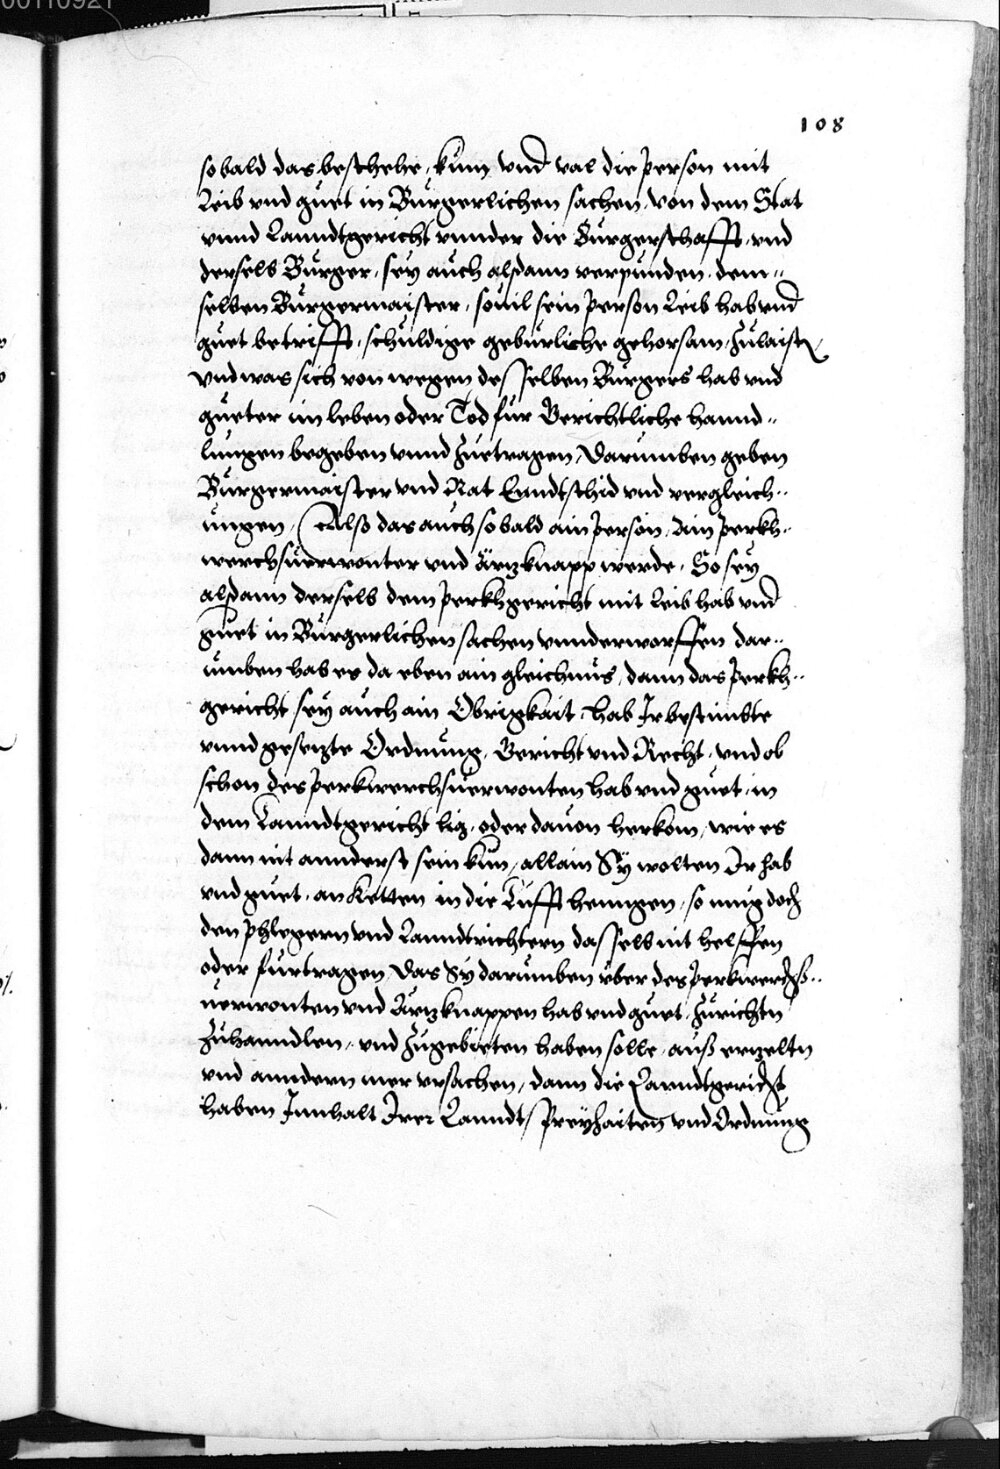 00110921
108
sobald das beschehe, kum vnd val die person mit
Leib vnd guet in Burgerlichen sachen, von dem Stat
vnnd Lanndtgericht vnnder die Burgerschafft, vnd
derselb Burger, sey auch alsdann verpunden, dem¬
selben Burgermaister, souil sein person Leib hab vnd
guet betrifft, schuldige geburliche gehorsam, Zulaistn
vnd was sich von wegen desselben Burgers hab vnd
gueter im leben oder Tod für Gerichtliche hannd¬
lungen begeben vnnd Zuetragen, Darumben geben
Burgermaister vnd Rat Enndtschid vnd vergleich¬
ungen, (Also das auch sobald ain person, ain perkh¬
werchsuerwonter vnd ärzknapp werde, So sey
alsdann derselb dem perkhgericht mit Leib hab vnd
guet in Burgerlichen sachen vnnderworffen dar¬
umben hab es da eben ain gleichnus, dann das perkh¬
gericht sey auch ain Obrigkait, hab Ir bestimbte
vnnd gesetzte Ordnung, Gericht vnd Recht, vnd ob
schon des perkwerchsuerwonten hab vnd guet, in
dem Lanndtgericht lig, oder dauon herkom, wie es
dann nit annderst sein kun, allain Sy wolten Ir hab
vnd guet, an Ketten in die Lufft henngen, so mug doch
den phlegern vnd Lanndtrichtern dasselb nit helffen
oder furtragen, Das Sy darumben vber des perkwerchs¬
uerwonten vnd Ärzknappen hab vnd guet, Zurichtn
Zuhanndlen, vnd Zugebieten haben solle, auß erzeltn
vnd anndern mer vrsachen, dann die Lanndtgericht
haben Innhalt Irer Lanndts freyhaiten vnd Ordnung